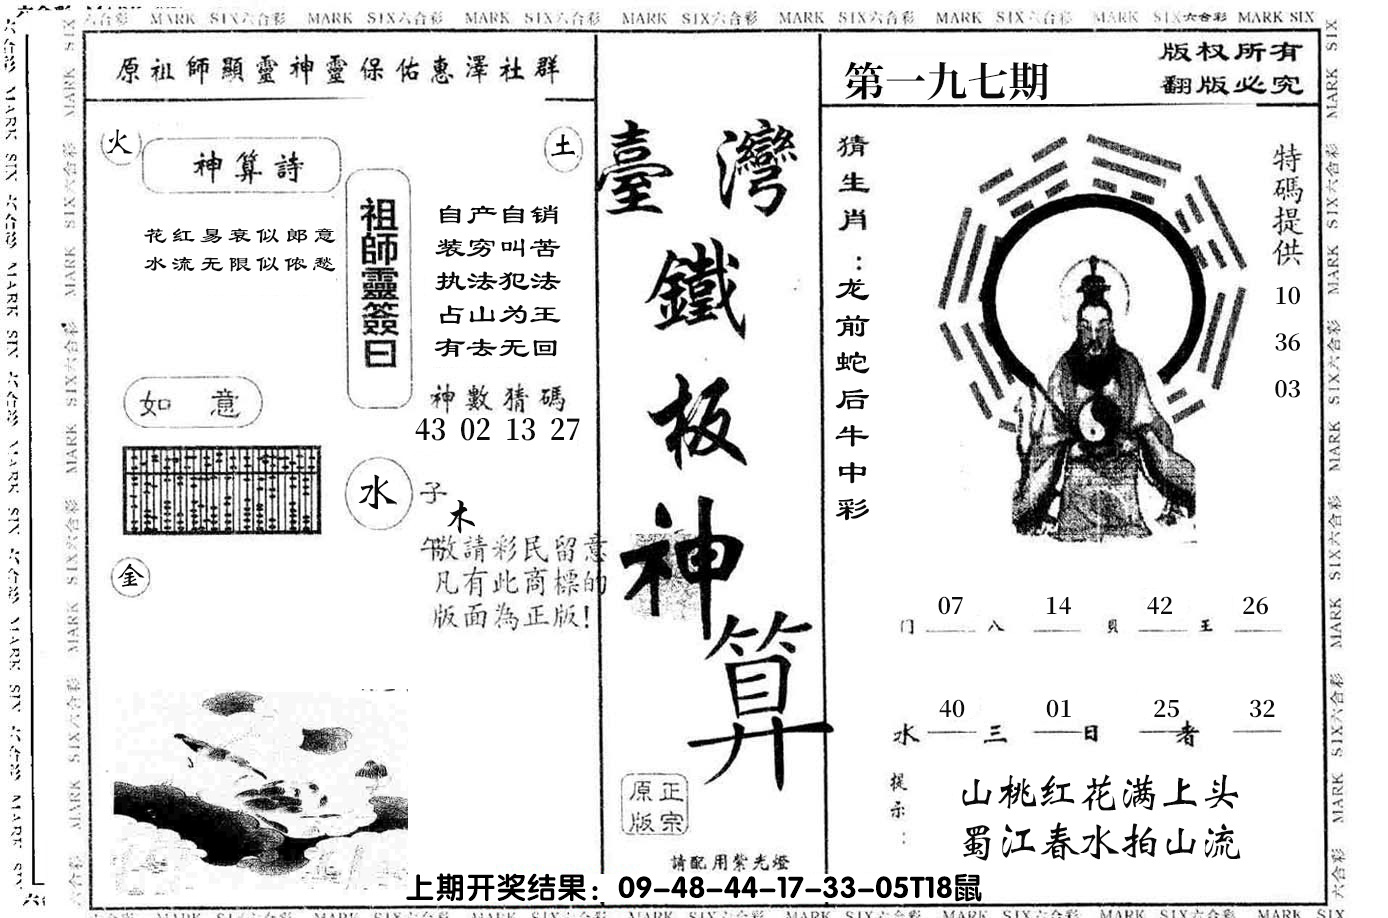 六合彩 MARK SIX六合彩 MARK SIX六合彩 MARK SIX六合彩 MARK SIX六合彩 MARK SIX六合彩 MARK SIX六合彩 MARK SIX六合彩 MARK SIX
原祖師顯靈神靈保佑惠澤社群
火
神算詩
土
花红易衰似郎意
水流无限似侬愁
祖師靈簽曰
自产自销
装穷叫苦
执法犯法
占山为王
有去无回
如意
神數猜碼
43 02 13 27
水
子
木
午
金
敬請彩民留意
凡有此商標的
版面為正版!
臺灣
鐵
板
神
算
正宗
原版
請配用紫光燈
第一九七期
版权所有
翻版必究
猜生肖：龙前蛇后牛中彩
特碼提供
10
36
03
07 14 42 26
门 八 貝 王
40 01 25 32
水 三 日 者
提示：
山桃红花满上头
蜀江春水拍山流
上期开奖结果：09-48-44-17-33-05T18鼠